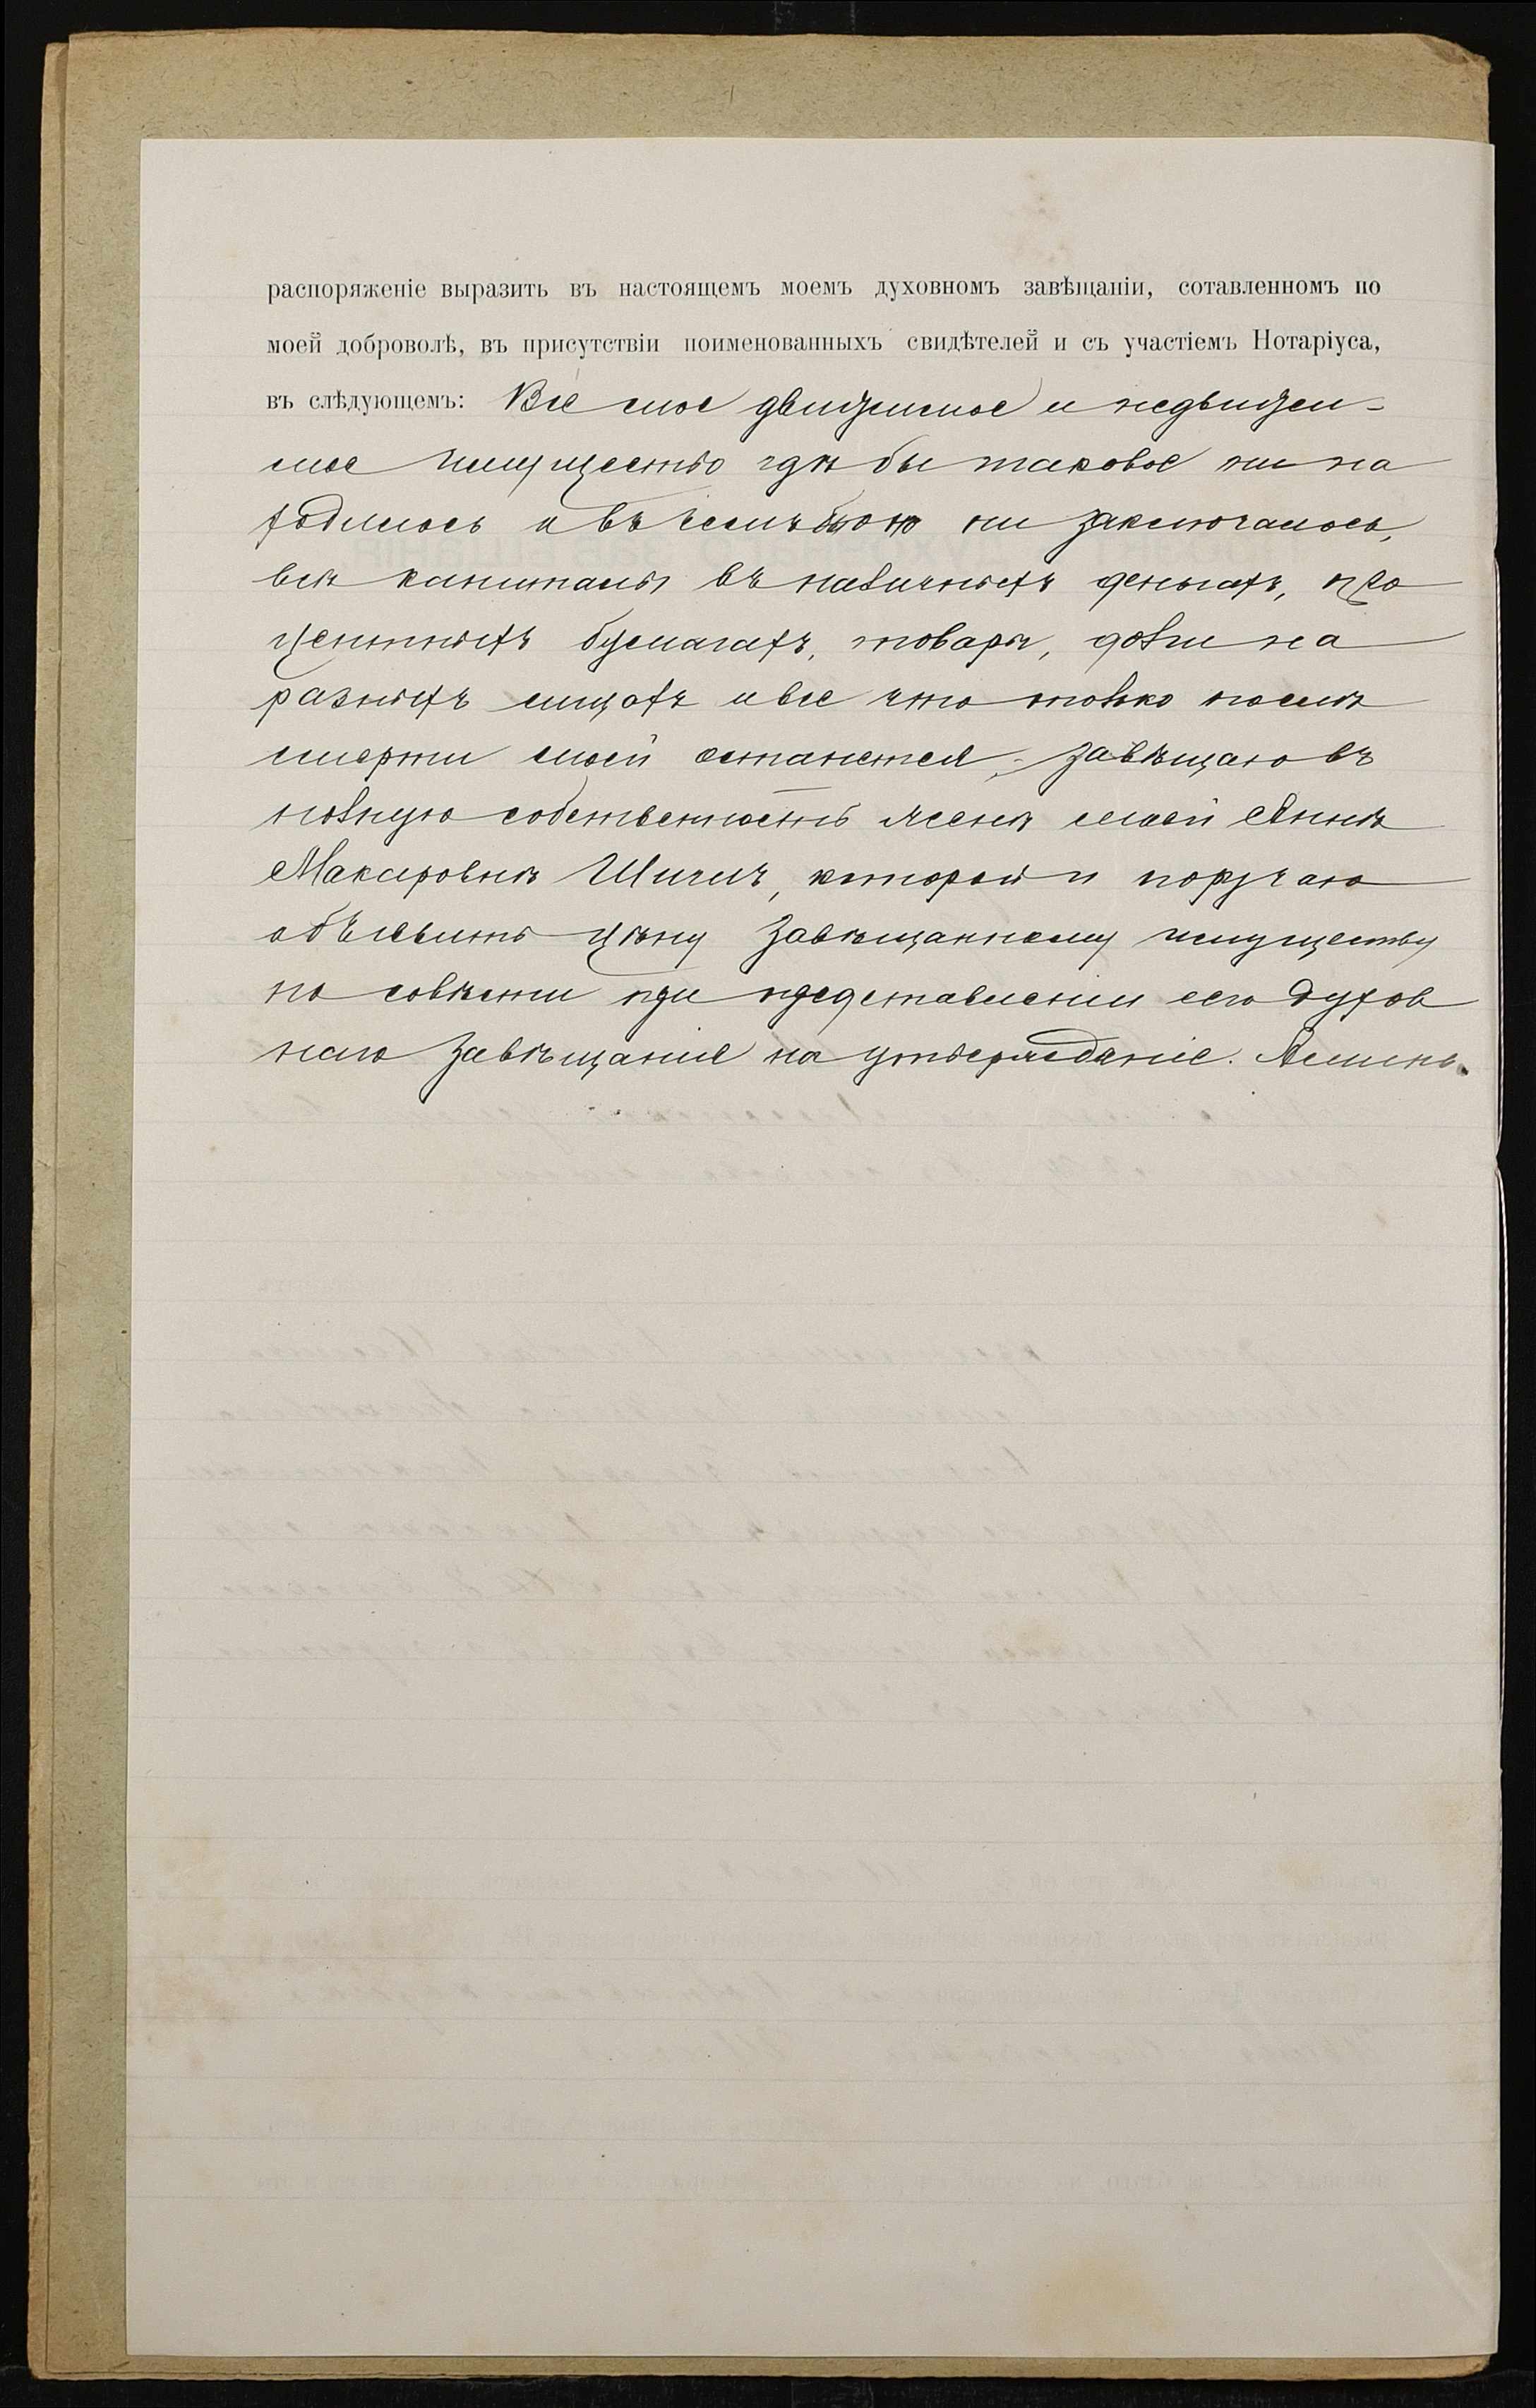 распоряженіе выразить въ настоящемъ моемъ духовномъ завѣщаніи, сотавленномъ по
моей доброволѣ, въ присутствіи поименованныхъ свидѣтелей и съ участіемъ Нотаріуса,
въ слѣдующемъ: Все мое движимое и недвижи-
мое имущество гдѣ бы таковое ни на
ходилось и въ чемъ бы то ни заключалось,
всѣ капиталы въ наличныхъ деньгахъ, про
центныхъ бумагахъ, товарѣ, долги на
разныхъ лицахъ и все что только послѣ
смерти моей останется, завѣщаю въ
полную собственность женѣ моей Аннѣ
Макаровнѣ Шигиъ, которой и поручаю
объявить цѣну завѣщанному имуществу
по совѣсти при представленіи сего духов
наго завѣщанія на утвержденіе. Аминь.